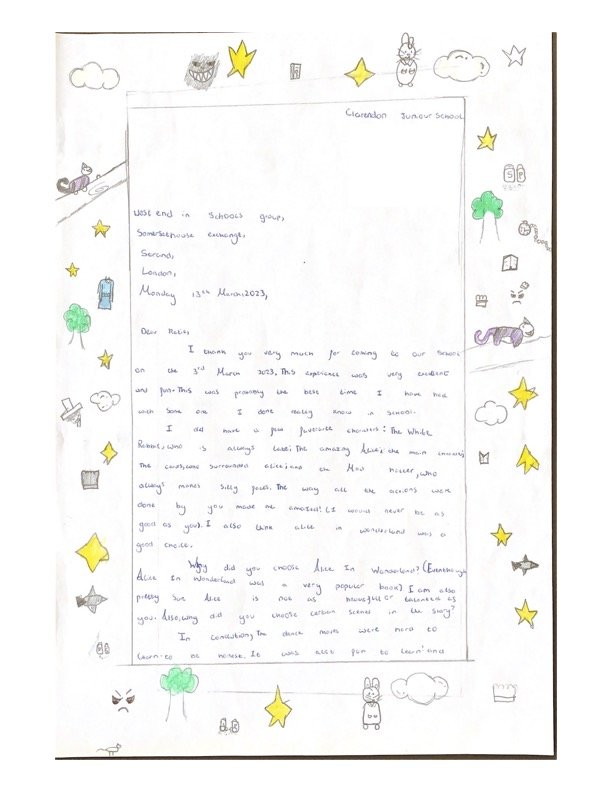 Clarendon Juniour School
West end in Schools group,
Somersethouse exchange,
Strand,
London,
Monday 13th March 2023,
Dear Robin,
I thank you very much for coming to our School
on the 3rd March 2023. This experience was very excellent
and fun. This was probably the best time I have had
with some one I done really know in school.
I did have a few favorite characters: The White
Rabbit, who is always late; The amazing Alice; the main
the cards, who surrounded alice; and the Mad Hatter, who
always makes silly faces. The way all the actions were
done by you made me amazed! (I would never be as
good as you). I also think alice in wonderland was a
good choice.
Why did you choose Alice In Wonderland? (Eventhough
Alice In Wonderland was a very popular book) I am also
pretty sure Alice is not as or talented as
you. Also, why did you choose certain scenes in the story?
In conclution, The dance moves were hard to
learn-to be honest. It was also fun to learn and
S P